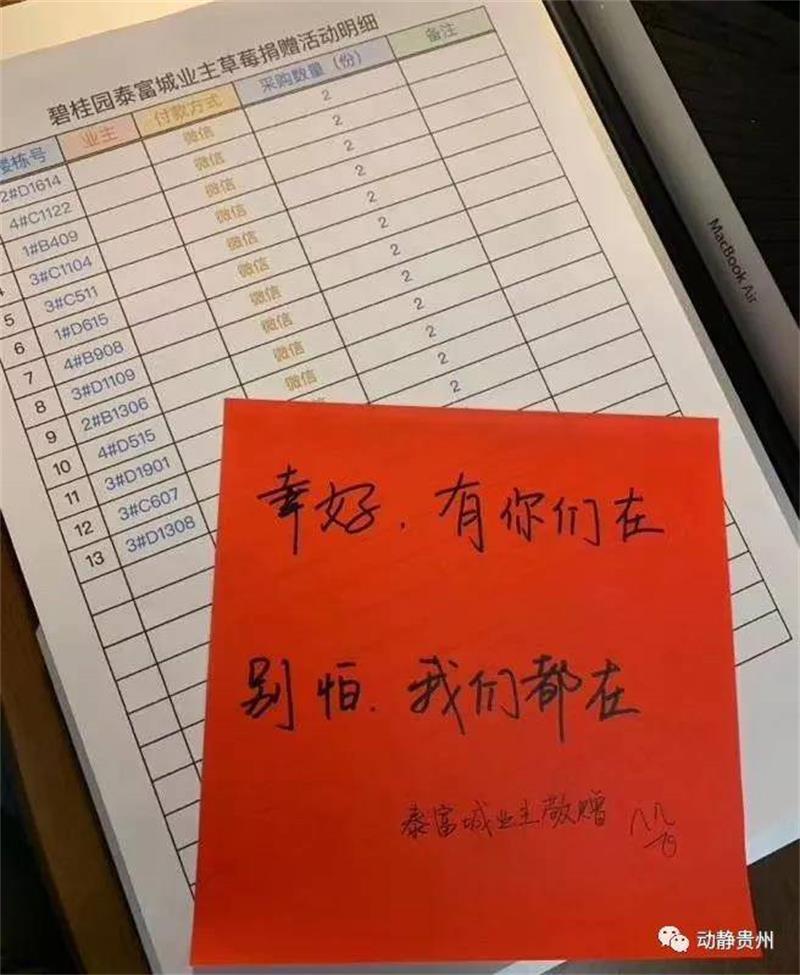 碧桂园泰富城业主草莓捐赠活动明细
楼栋号 业主 付款方式 采购数量（份） 备注
2#D1614 微信 2
4#C1122 微信 2
1#B409 微信 2
3#C1104 微信 2
5 3#C511 微信 2
6 1#D615 微信 2
7 4#B908 微信 2
8 3#D1109 微信 2
9 2#B1306 微信 2
10 4#D515 微信 2
11 3#D1901 2
12 3#C607 2
13 3#D1308
幸好，有你们在
别怕，我们都在
泰富城业主敬赠
MacBook Air
动静贵州